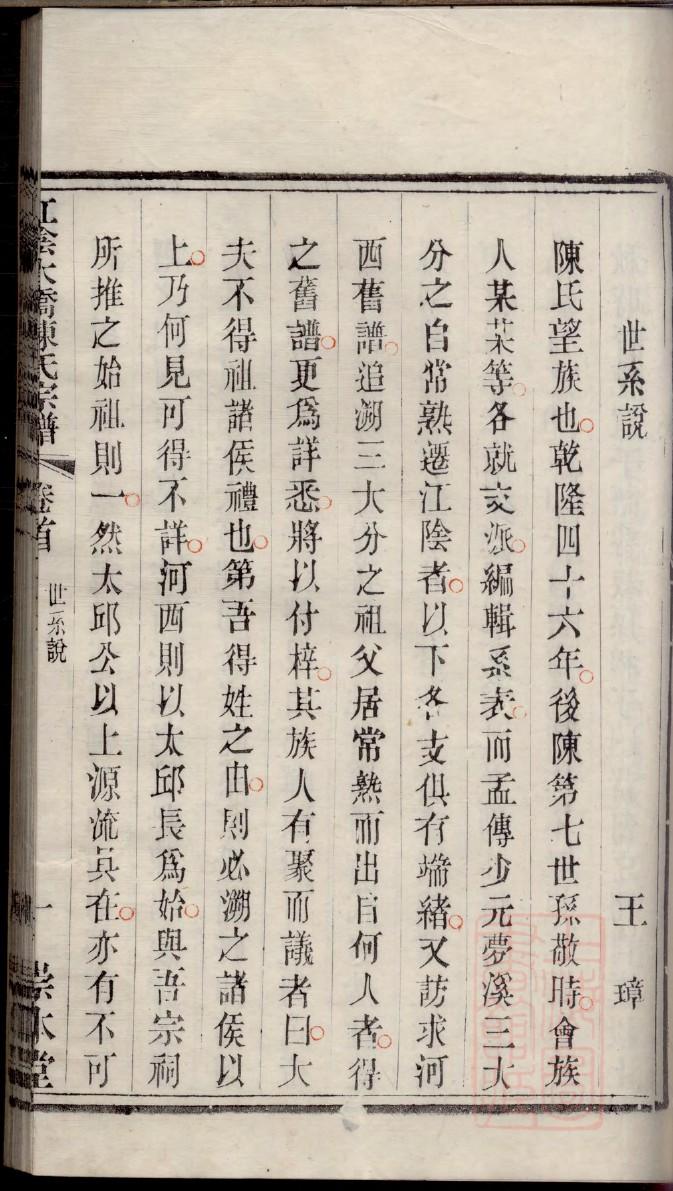 世系說 王璋
陳氏望族也乾隆四十六年後陳第七世孫敬時會族
人某某等各就支派編輯系表而孟傳少元夢溪三大
分之自常熟遷江陰者以下各支俱有端緒又訪求河
西舊譜追溯三大分之祖父居常熟而出自何人者得
之舊譜更為詳悉將以付梓其族人有聚而議者曰大
夫不得祖諸侯禮也第吾得姓之由則必溯之諸侯以
上乃何見可得不詳河西則以太邱長為始與吾宗祠
所推之始祖則一然太邱公以上源流具在亦有不可
江陰大橋陳氏宗譜 卷首 世系說 一 崇本堂